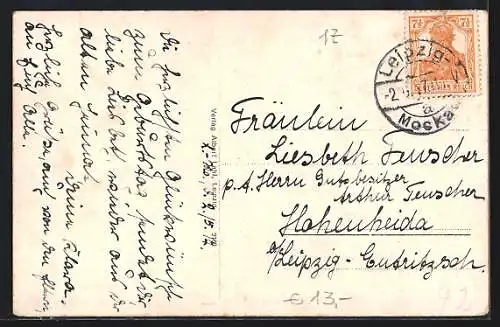 Die herzlichsten Glückwünsche
zum Geburtstag sendet dir
liebe Liesbet, wieder aus der
alten Heimat
deine Klara.
Herzliche Grüße, auch von den
an Euch Alle.
Verlag Albert
17
7½ 7½
Leipzig-
Mockau
a
Fräulein
Liesbeth Teuscher
p. A. Herrn Gutsbesitzer
Arthur Teuscher
Hohenheida
b/Leipzig-Eutritzsch.
€ 13,-
92